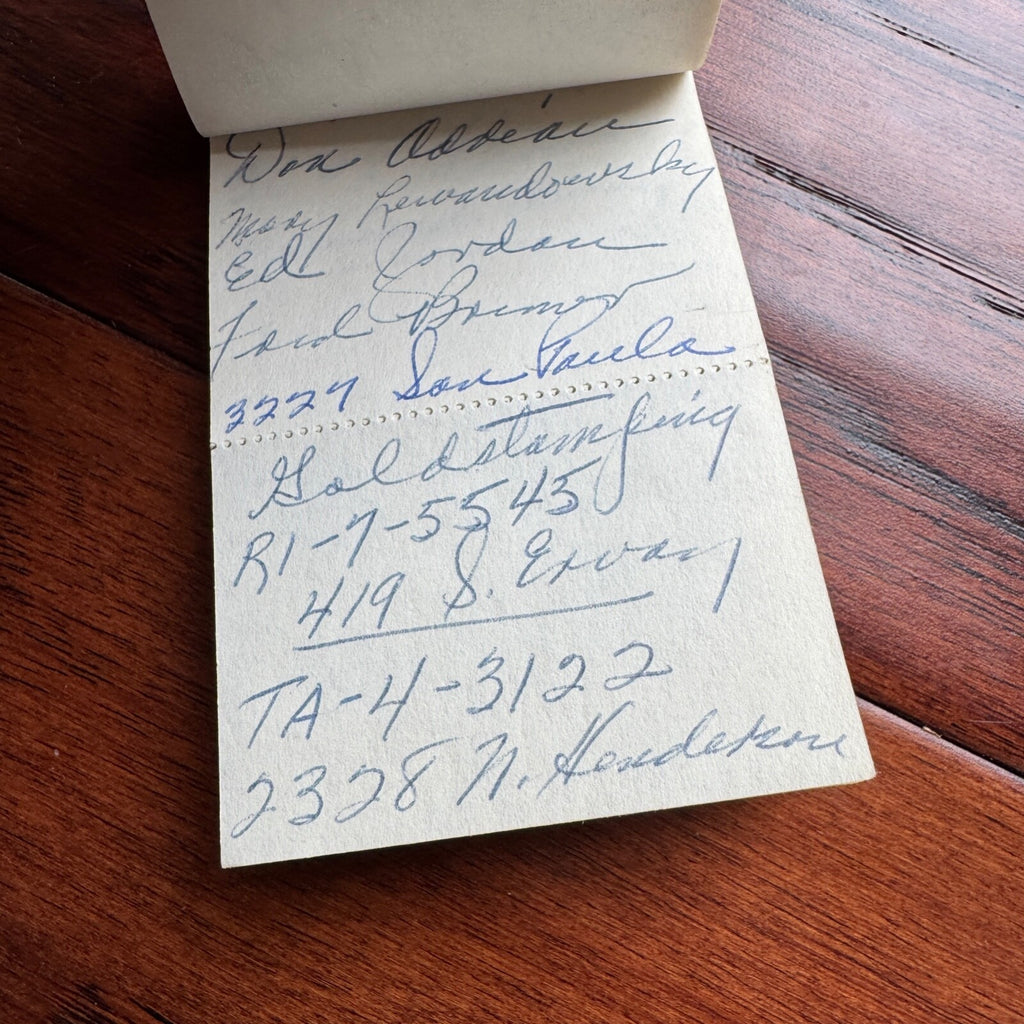 Don
Mary Lewandowsky
Ed Jordan
Ford
3227 San Paula
Goldstamping
RI-7-5545
419 S. Ervay
TA-4-3122
2328 N. Henderson